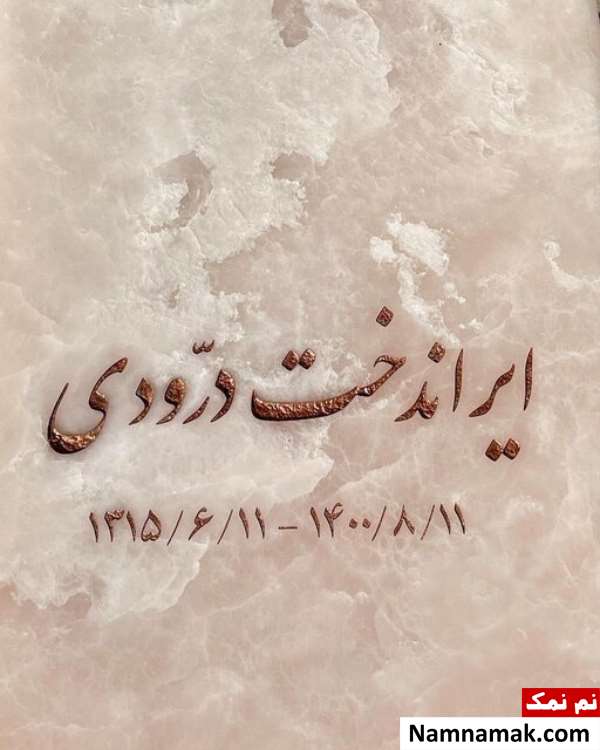 ایراندخت درّودی
۱۳۱۵/۶/۱۱ - ۱۴۰۰/۸/۱۱
نم نمک
Namnamak.com